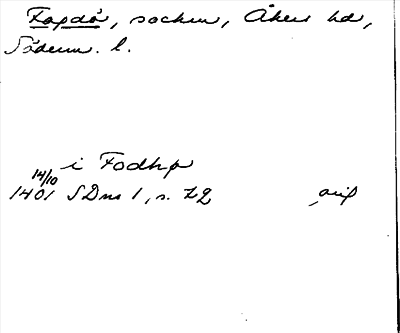 Fogdö, socken, Åkers hd,
Söderm. l.
i Fodhø
14/10
1401 SDns 1, s. 72 orig